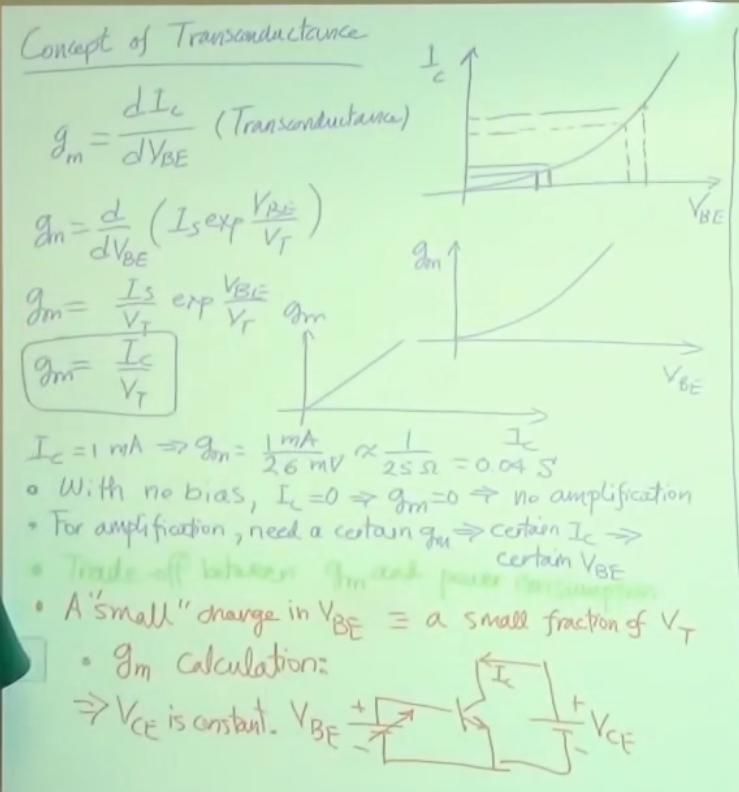 Concept of Transconductance
g_m = dI_c/dV_BE (Transconductance)
I_c
V_BE
g_m = d/dV_BE (I_S exp V_BE/V_T)
g_m
V_BE
g_m = I_S/V_T exp V_BE/V_T
g_m
I_c
g_m = I_c/V_T
I_c = 1 mA ⇒ g_m = 1 mA/26 mV ∝ 1/25 Ω = 0.04 S
• With no bias, I_c = 0 ⇒ g_m = 0 ⇒ no amplification
• For amplification, need a certain g_m ⇒ certain I_c ⇒
certain V_BE
• Trade off between g_m and power consumption
• A "small" change in V_BE ≡ a small fraction of V_T
• g_m calculation:
⇒ V_CE is constant. V_BE + - I_c + - V_CE